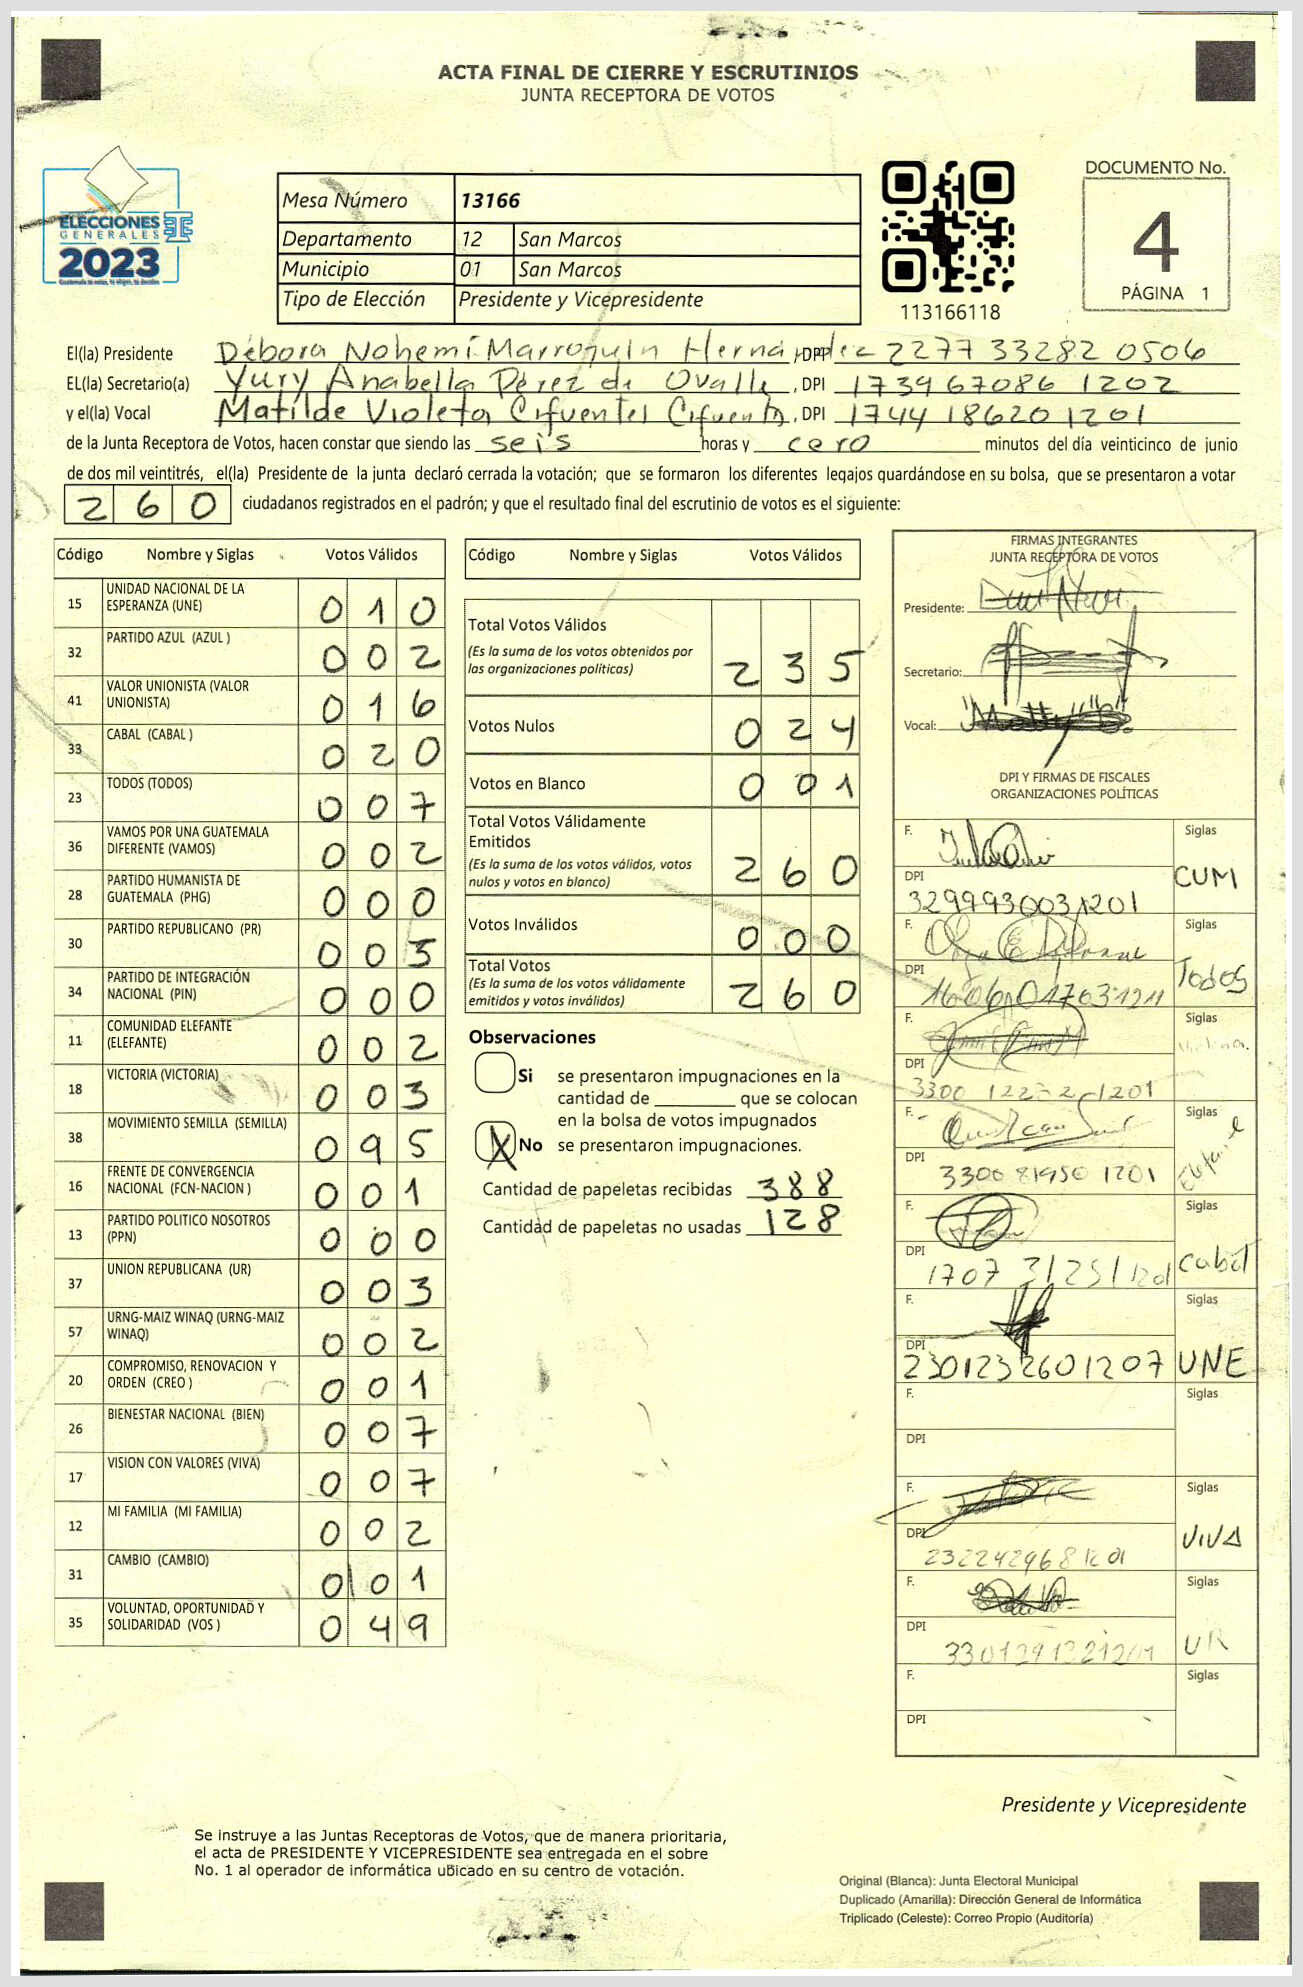 ACTA FINAL DE CIERRE Y ESCRUTINIOS
JUNTA RECEPTORA DE VOTOS
ELECCIONES
GENERALES
2023
TSE
Mesa Número 13166
Departamento 12 San Marcos
Municipio 01 San Marcos
Tipo de Elección Presidente y Vicepresidente
113166118
DOCUMENTO No.
4
PÁGINA 1
El(la) Presidente Débora Nohemí Marroquín Hernández, DPI 2277 33282 0506
EL(la) Secretario(a) Yury Anabella Pérez de Ovalle, DPI 1739 67086 1202
y el(la) Vocal Matilde Violeta Cifuentes Cifuentes, DPI 1744 18620 1201
de la Junta Receptora de Votos, hacen constar que siendo las seis horas y cero minutos del día veinticinco de junio
de dos mil veintitrés, el(la) Presidente de la junta declaró cerrada la votación; que se formaron los diferentes legajos quardándose en su bolsa, que se presentaron a votar
260 ciudadanos registrados en el padrón; y que el resultado final del escrutinio de votos es el siguiente:
Código Nombre y Siglas Votos Válidos
15 UNIDAD NACIONAL DE LA ESPERANZA (UNE) 010
32 PARTIDO AZUL (AZUL ) 002
41 VALOR UNIONISTA (VALOR UNIONISTA) 016
33 CABAL (CABAL ) 020
23 TODOS (TODOS) 007
36 VAMOS POR UNA GUATEMALA DIFERENTE (VAMOS) 002
28 PARTIDO HUMANISTA DE GUATEMALA (PHG) 000
30 PARTIDO REPUBLICANO (PR) 003
34 PARTIDO DE INTEGRACIÓN NACIONAL (PIN) 000
11 COMUNIDAD ELEFANTE (ELEFANTE) 002
18 VICTORIA (VICTORIA) 003
38 MOVIMIENTO SEMILLA (SEMILLA) 095
16 FRENTE DE CONVERGENCIA NACIONAL (FCN-NACION ) 001
13 PARTIDO POLITICO NOSOTROS (PPN) 000
37 UNION REPUBLICANA (UR) 003
57 URNG-MAIZ WINAQ (URNG-MAIZ WINAQ) 002
20 COMPROMISO, RENOVACION Y ORDEN (CREO ) 001
26 BIENESTAR NACIONAL (BIEN) 007
17 VISION CON VALORES (VIVA) 007
12 MI FAMILIA (MI FAMILIA) 002
31 CAMBIO (CAMBIO) 001
35 VOLUNTAD, OPORTUNIDAD Y SOLIDARIDAD (VOS ) 049
Código Nombre y Siglas Votos Válidos
Total Votos Válidos 235
(Es la suma de los votos obtenidos por
las organizaciones políticas)
Votos Nulos 024
Votos en Blanco 001
Total Votos Válidamente
Emitidos 260
(Es la suma de los votos válidos, votos
nulos y votos en blanco)
Votos Inválidos 000
Total Votos 260
(Es la suma de los votos válidamente
emitidos y votos inválidos)
Observaciones
Si se presentaron impugnaciones en la
cantidad de ________ que se colocan
en la bolsa de votos impugnados
X No se presentaron impugnaciones.
Cantidad de papeletas recibidas 388
Cantidad de papeletas no usadas 128
FIRMAS INTEGRANTES
JUNTA RECEPTORA DE VOTOS
Presidente:
Secretario:
Vocal:
DPI Y FIRMAS DE FISCALES
ORGANIZACIONES POLÍTICAS
F. Siglas
DPI CUM
F. Siglas
DPI Todos
F. Siglas
DPI
F. Siglas
DPI 3300 81950 1201 Elefante
F. Siglas
DPI Cabal
F. Siglas
DPI 230123260 1207 UNE
F. Siglas
DPI
F. Siglas
DPI 232242968 1201 VIVA
F. Siglas
DPI UR
F. Siglas
DPI
Presidente y Vicepresidente
Se instruye a las Juntas Receptoras de Votos, que de manera prioritaria,
el acta de PRESIDENTE Y VICEPRESIDENTE sea entregada en el sobre
No. 1 al operador de informática ubicado en su centro de votación.
Original (Blanca): Junta Electoral Municipal
Duplicado (Amarilla): Dirección General de Informática
Triplicado (Celeste): Correo Propio (Auditoría)